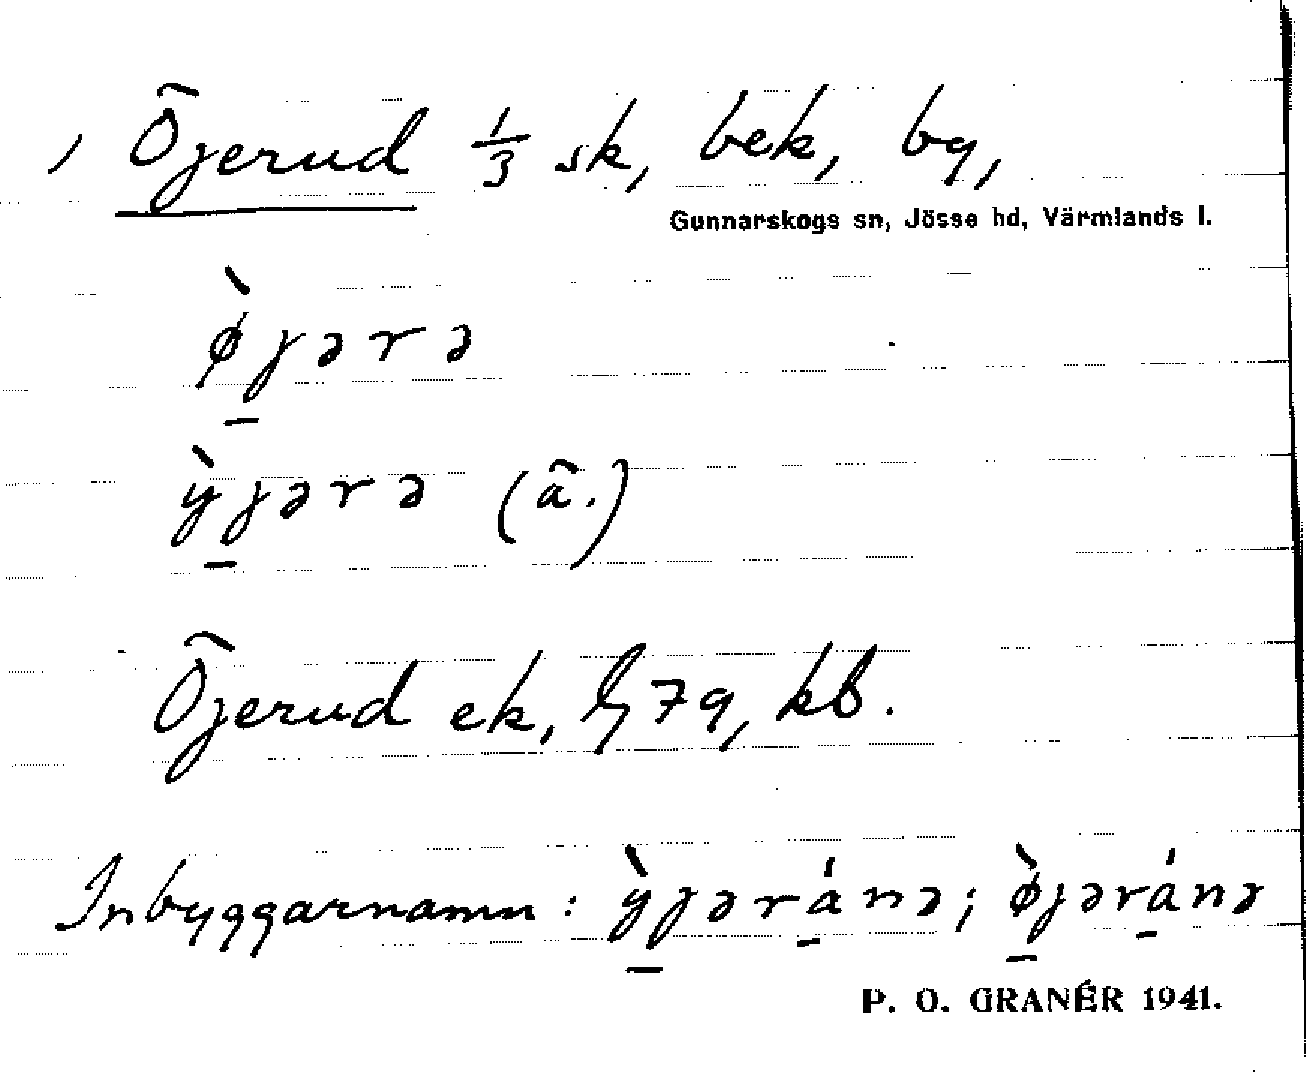 , Öjerud 1/3 sk, bek, by,
Gunnarskogs sn, Jösse hd, Värmlands l.
ø̀jərə
y̌̀jərə (ä.)
Öjerud ek, 79, kb.
Inbyggarnamn: ỳjəránə; ø̀jəránə
P. O. GRANÉR 1941.